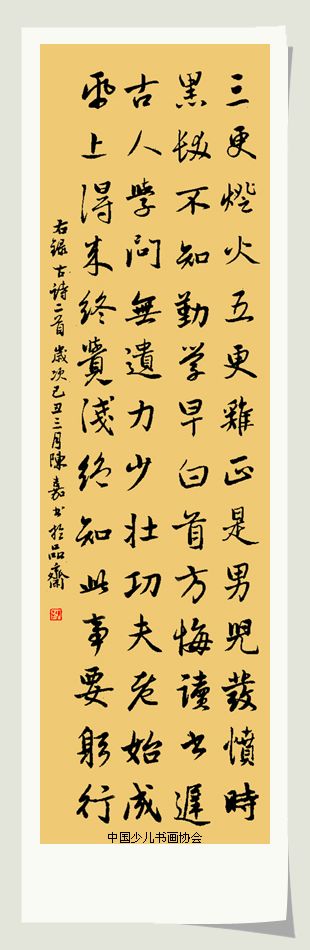 三更燈火五更雞正是男兒發憤時
黑髮不知勤学早白首方悔讀书遲
古人學問無遺力少壯功夫老始成
帋上得来終覺淺絶知此事要躬行
右録古詩二首 歲次己丑三月陳嘉书於品齋
中国少儿书画协会